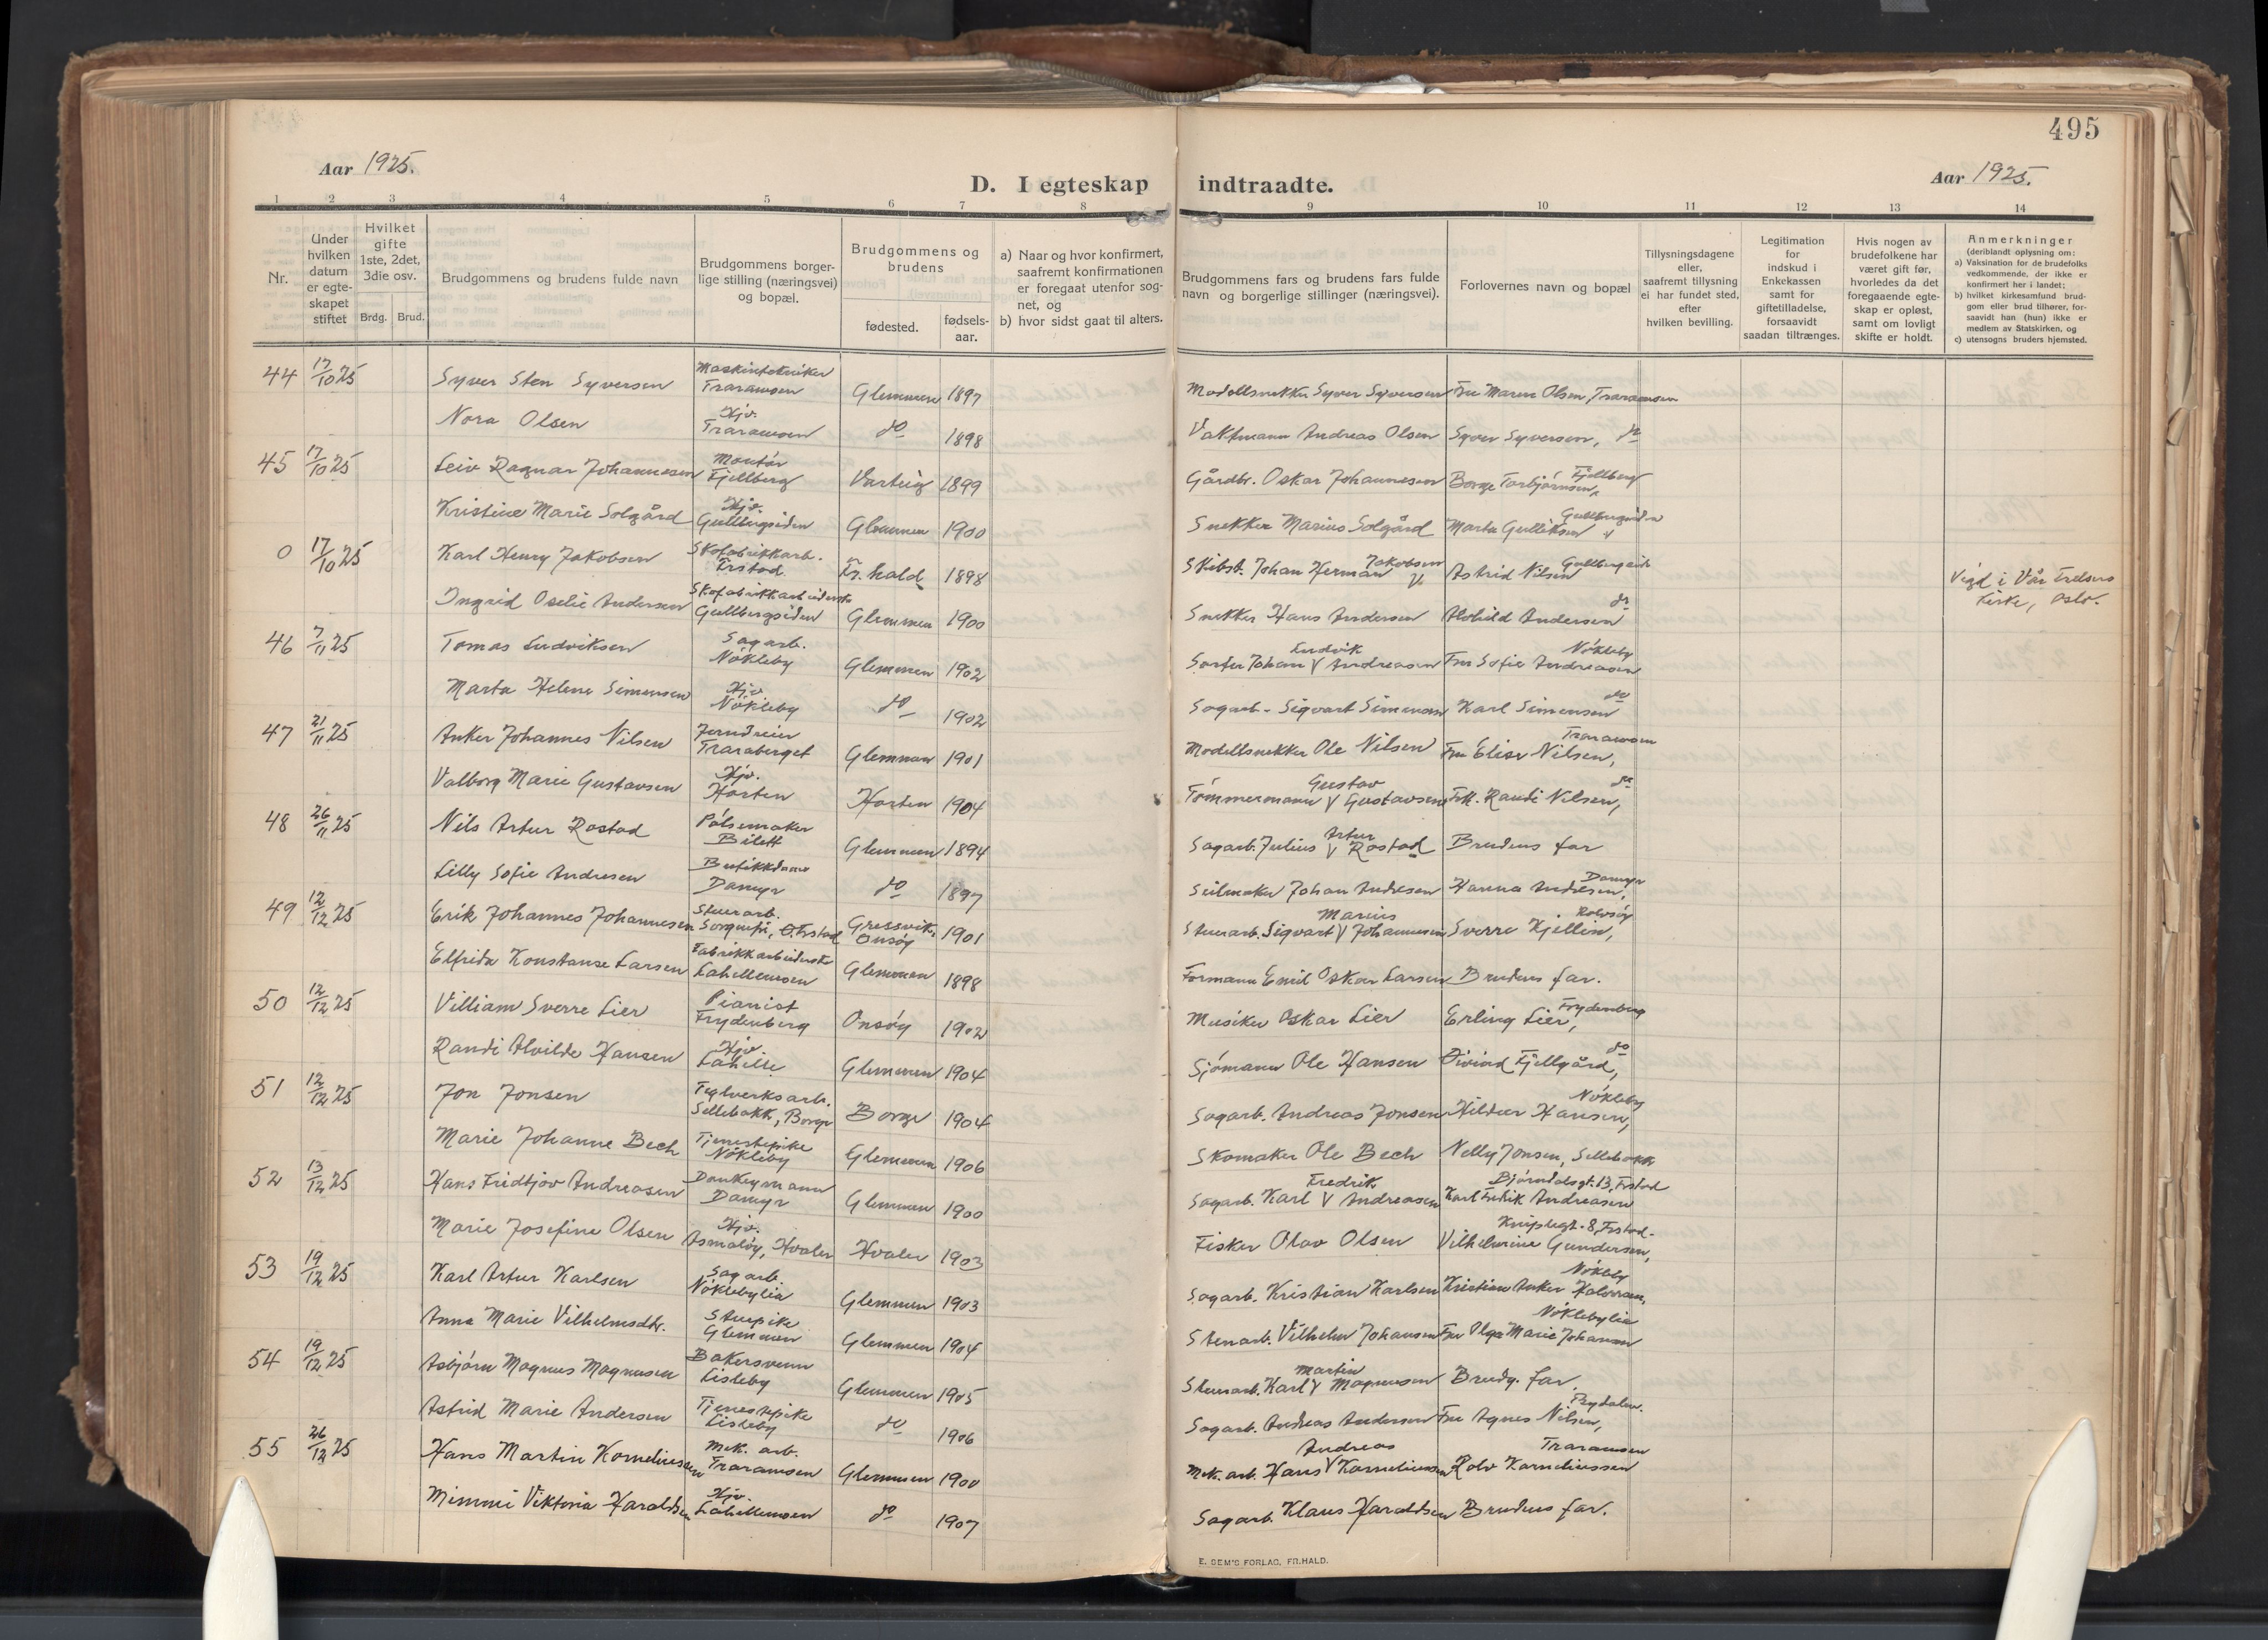 495
Aar 1925.
Aar 1925.
D. I egteskap indtraadte.
1 2 3 4 5 6 7 8 9 10 11 12 13 14
Nr.
Under hvilken datum er egteskapet stiftet
Hvilket gifte 1ste, 2det, 3die osv.
Brdg. Brud.
Brudgommens og brudens fulde navn
Brudgommens borgerlige stilling (næringsvei) og bopæl.
Brudgommens og brudens
fødested. fødselsaar.
a) Naar og hvor konfirmert, saafremt konfirmationen er foregaat utenfor sognet, og
b) hvor sidst gaat til alters.
Brudgommens fars og brudens fars fulde navn og borgerlige stillinger (næringsvei).
Forlovernes navn og bopæl
Tillysningsdagene eller, saafremt tillysning ei har fundet sted, efter hvilken bevilling.
Legitimation for indskud i Enkekassen samt for giftetilladelse, forsaavidt saadan tiltrænges.
Hvis nogen av brudefolkene har været gift før, hvorledes da det foregaaende egteskap er opløst, samt om lovligt skifte er holdt.
Anmerkninger (deriblandt oplysning om:
a) Vaksination for de brudefolks vedkommende, der ikke er konfirmert her i landet;
b) hvilket kirkesamfund brudgom eller brud tilhører, forsaavidt han (hun) ikke er medlem av Statskirken, og
c) utensogns bruders hjemsted.
44 17/10 25 Syver Sten Syversen Maskintekniker Traramsen Glemmen 1897 Modellsnekker Syver Syversen Fru Maren Olsen, Traramsen
Nora Olsen Hjv. Traramsen do 1898 Vaktmann Andreas Olsen Syver Syversen, do
45 17/10 25 Leiv Ragnar Johannesen Montør Fjellberg Varteig 1899 Gårdbr. Oskar Johannesen Borge Torbjørnsen, Fjellberg
Kristine Marie Solgård Hjv. Gullbergsiden Glemmen 1900 Snekker Marius Solgård Marta Gulliksen Gullbergsiden
0 17/10 25 Karl Henry Jakobsen Skofabrikkarb. Frstad Fr.hald 1898 Skibst. Johan Herman Jakobsen Astrid Nilsen Gullbergsid. Vigd i Vår Frelsers Kirke, Oslo.
Ingrid Oselie Andersen Skofabrikkarbeiderske Gullbergsiden Glemmen 1900 Snekker Hans Andersen Alvhild Andersen do
46 7/11 25 Tomas Ludviksen Sagarb. Nökleby Glemmen 1902 Sorter Johan Ludvik Andreasen Fru Sofie Andreasen Nökleby
Marta Helene Simensen Hjv. Nökleby do 1902 Sagarb. Sigvart Simensen Karl Simensen do
47 21/11 25 Anker Johannes Nilsen Jerndreier Traraberget Glemmen 1901 Modellsnekker Ole Nilsen Fru Elise Nilsen, Traramsen
Valborg Marie Gustavsen Hjv. Horten Horten 1904 Tömmermann Gustav Gustavsen Frk. Randi Nilsen, do
48 26/11 25 Nils Artur Rostad Pölsemaker Bilett Glemmen 1894 Sagarb. Julius Artur Rostad Brudens far
Lilly Sofie Andresen Butikkdame Damyr do 1897 Seilmaker Johan Andresen Hanna Andresen, Damyr
49 12/12 25 Erik Johannes Johannesen Stenarb. Sorgenfri, O. Frstad Gressvik, Onsöy 1901 Stenarb. Sigvart Marius Johannesen Sverre Kjellin, Rolvsöy
Elfrida Konstanse Larsen Fabrikkarbeiderske Lahellemsen Glemmen 1898 Formann Emil Oskar Larsen Brudens far.
50 12/12 25 Villiam Sverre Lier Pianist Frydenberg Onsöy 1902 Musiker Oskar Lier Erling Lier, Frydenberg
Randi Alvilde Hansen Hjv. Lahelle Glemmen 1904 Sjömann Ole Hansen Öivind Fjellgård, do
51 12/12 25 Jon Jonsen Teglverksarb. Sellebakk, Borge Borge 1904 Sagarb. Andreas Jonsen Hildur Hansen, Nökleby
Marie Johanne Bech Tjenestepike Nökleby Glemmen 1906 Skomaker Ole Bech Nelly Jonsen, Sellebakk
52 13/12 25 Hans Fridtjov Andreasen Donkeymann Damyr Glemmen 1900 Sagarb. Karl Fredrik Andreasen Karl Fredrik Andreasen Björndalsgt. 13, Frstad
Marie Josefine Olsen Hjv. Asmalöy, Hvaler Hvaler 1903 Fisker Olav Olsen Vilhelmine Gundersen, Knipleg. 8, Frstad.
53 19/12 25 Karl Artur Karlsen Sagarb. Nöklebylia Glemmen 1903 Sagarb. Kristian Karlsen Kristian Anker Halvorsen, Nökleby
Anna Marie Vilhelmsdtr. Stuepike Glemmen Glemmen 1904 Stenarb. Vilhelm Johansen Fru Olga Marie Johansen Nöklebylia
54 19/12 25 Asbjörn Magnus Magnusen Bakersvenn Lisleby Glemmen 1905 Stenarb. Karl Martin Magnussen Brudg. far.
Astrid Marie Andersen Tjenestepike Lisleby do 1906 Sagarb. Andreas Andersen Fru Agnes Nilsen, Frydalen.
55 26/12 25 Hans Martin Korneliussen Mek. arb. Traramsen Glemmen 1900 Mek. arb. Hans Andreas Korneliussen Rolv Korneliussen Traramsen
Mimmi Viktoria Haraldsen Hjv. Lahellemsen do 1907 Sagarb. Klaus Haraldsen Brudens far.
E. SEM'S FORLAG, FR.HALD.